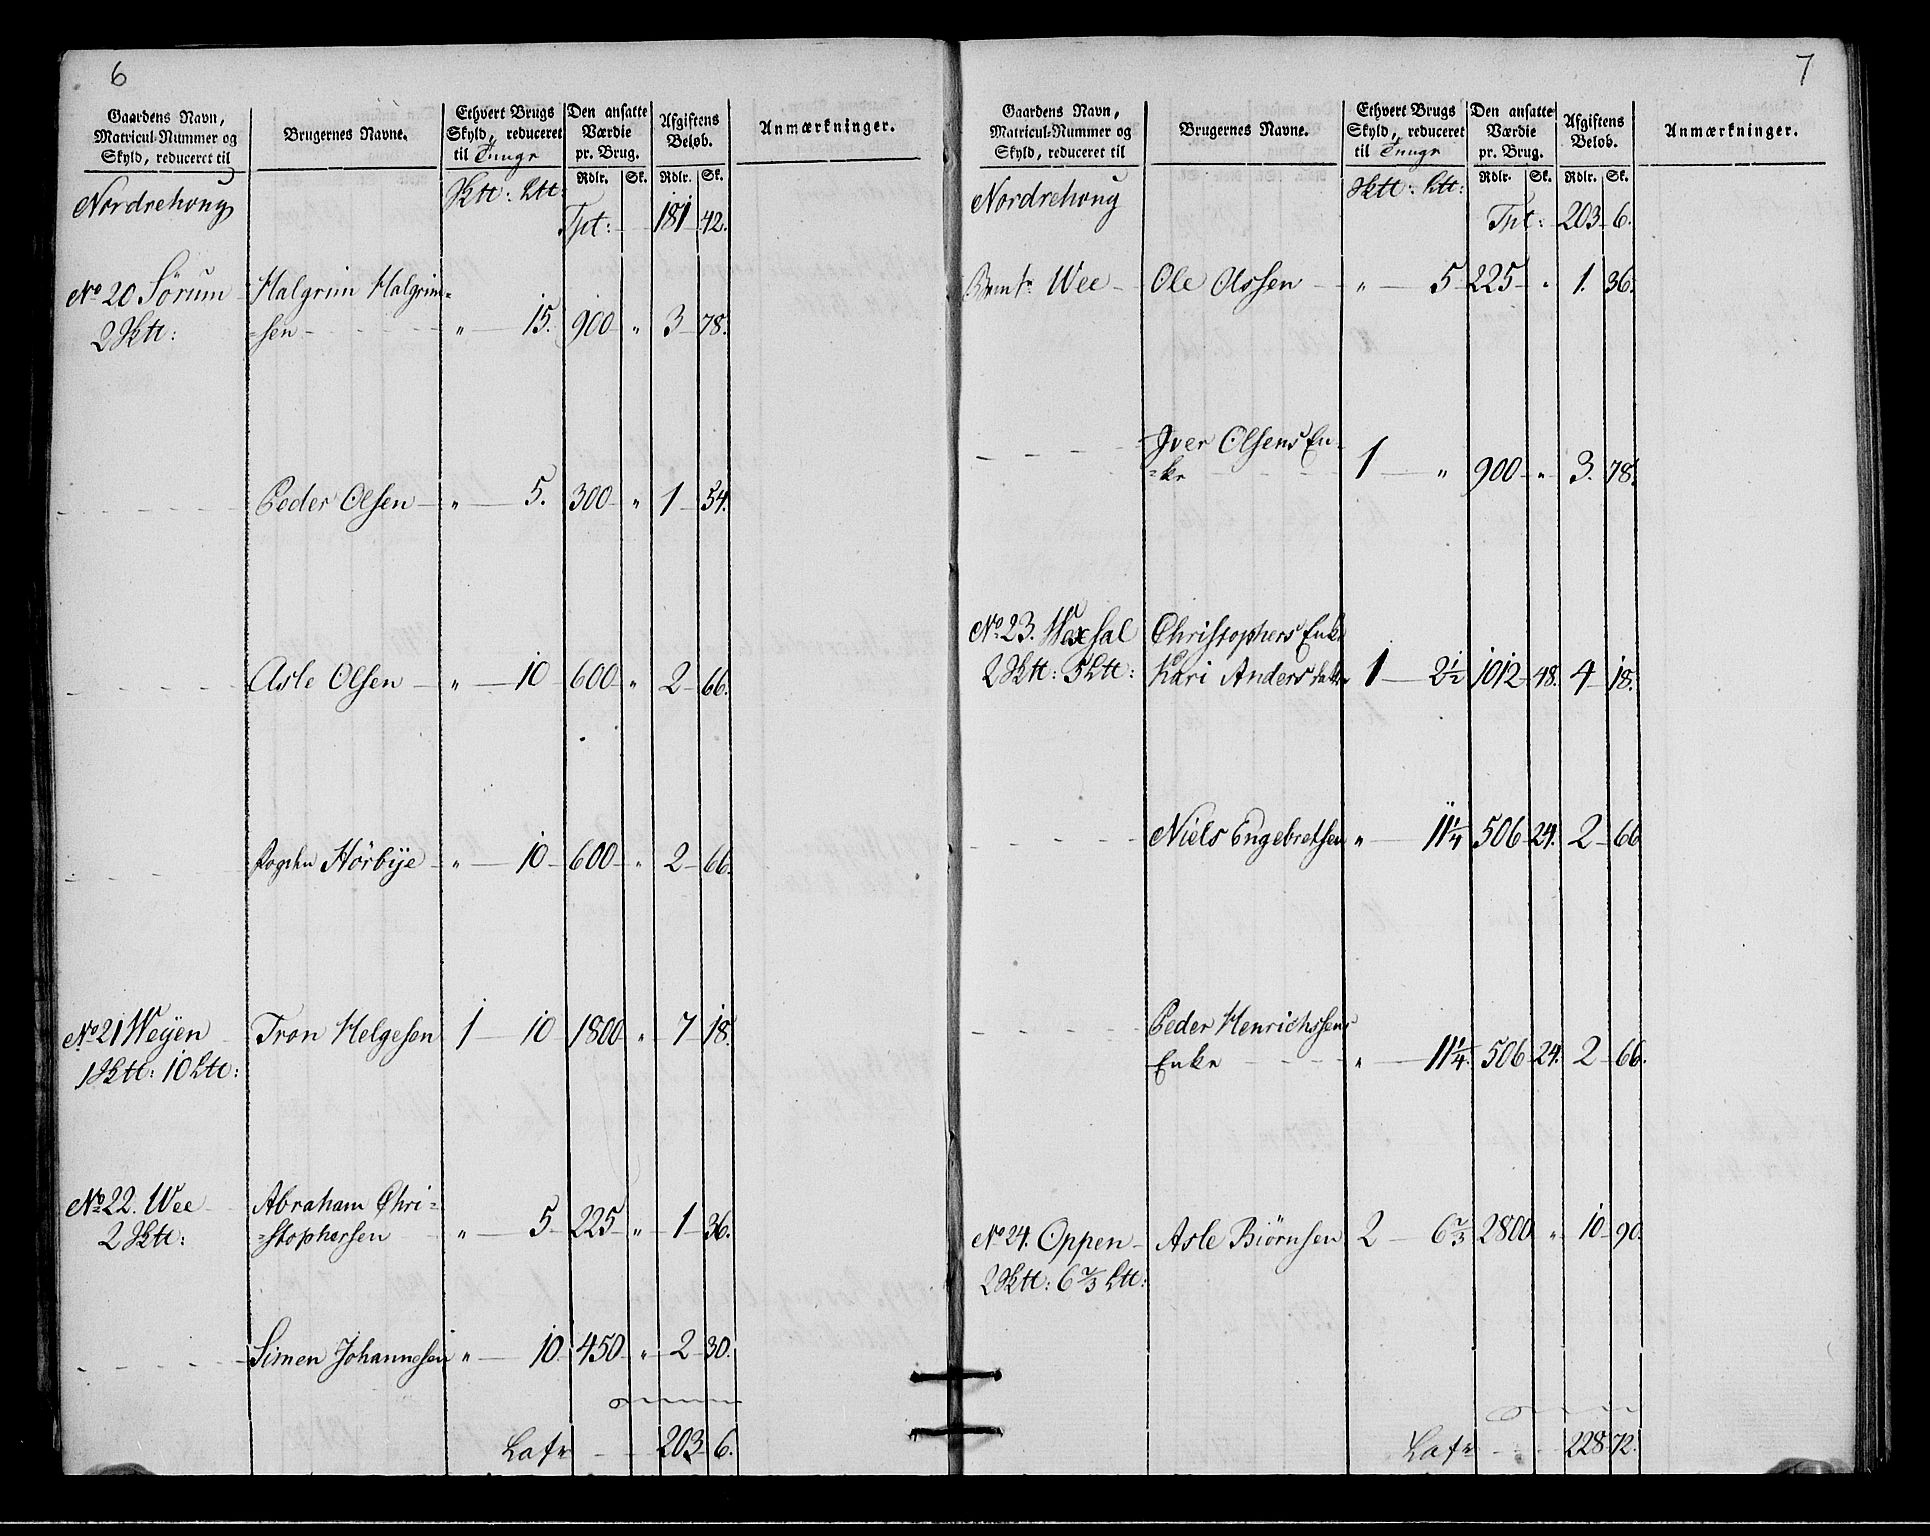 6
Gaardens Navn,
Matricul-Nummer og
Skyld, reduceret til
Brugernes Navne.
Ethvert Brugs
Skyld, reduceret
til Tunge
Den ansatte
Værdie
pr. Brug.
Afgiftens
Beløb.
Anmærkninger.
Rdlr. Sk. Rdlr. Sk.
Nordrehoug Sktt: Ltt:
Tpt: 181 42.
No 20 Sørum Halgrim Halgrim=
2 Sktt: =sen " 15. 900 " 3 78.
Peder Olsen " 5. 300 " 1 54.
Asle Olsen " 10 600 " 2 66.
Hörbye " 10 600 " 2 66.
No 21 Weyen Tron Helgesen 1 10 1800 " 7 18.
1 Sktt: 10 Ltt:
No 22. Wee Abraham Chri=
2 Sktt: =stophersen " 5 225 " 1 36.
Simen Johannesen " 10 450 " 2 30.
Latr 203 6.
7
Gaardens Navn,
Matricul-Nummer og
Skyld, reduceret til
Brugernes Navne.
Ethvert Brugs
Skyld, reduceret
til Tunge
Den ansatte
Værdie
pr. Brug.
Afgiftens
Beløb.
Anmærkninger.
Rdlr. Sk. Rdlr. Sk.
Nordrehoug Sktt: Ltt:
Tpt: 203 6.
Wee Ole Assen " 5 225 " 1. 36.
Iver Olsens En=
=ke 1 " 900 " 3. 78.
No 23. Wexsal Christophers Enke
2 Sktt: 5 Ltt: Kari Andersdatter 1 2½ 1012 48. 4 18.
Niels Engebretsen " 11¼ 506 24. 2 66
Peder Henrichssens
Enke " 11¼. 506 24. 2 66.
No 24. Oppen Asle Biørnsen 2 6⅔ 2800 " 10 90.
2 Sktt: 6⅔ Ltt:
Latr 228 72.